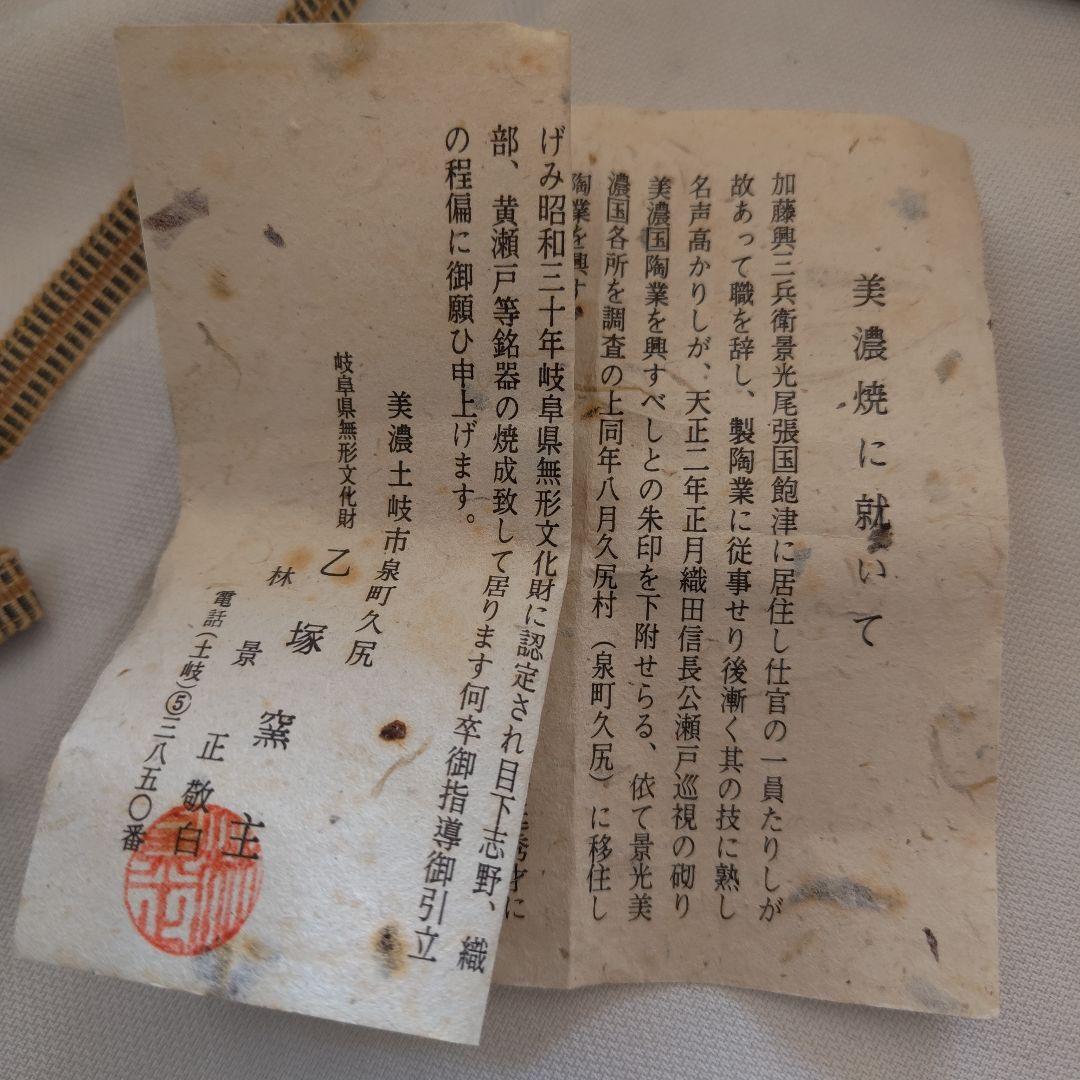 美濃焼に就いて
加藤興三兵衛景光尾張国飽津に居住し仕官の一員たりしが
故あって職を辞し、製陶業に従事せり後漸く其の技に熟し
名声高かりしが、天正二年正月織田信長公瀬戸巡視の砌り
美濃国陶業を興すべしとの朱印を下附せらる、依て景光美
濃国各所を調査の上同年八月久尻村（泉町久尻）に移住し
陶業を興す
げみ昭和三十年岐阜県無形文化財に認定され目下志野、織
部、黄瀬戸等銘器の焼成致して居ります何卒御指導御引立
の程偏に御願ひ申上げます。
美濃土岐市泉町久尻
乙塚窯主
岐阜県無形文化財
林景正敬白
電話（土岐）⑤三八五〇番